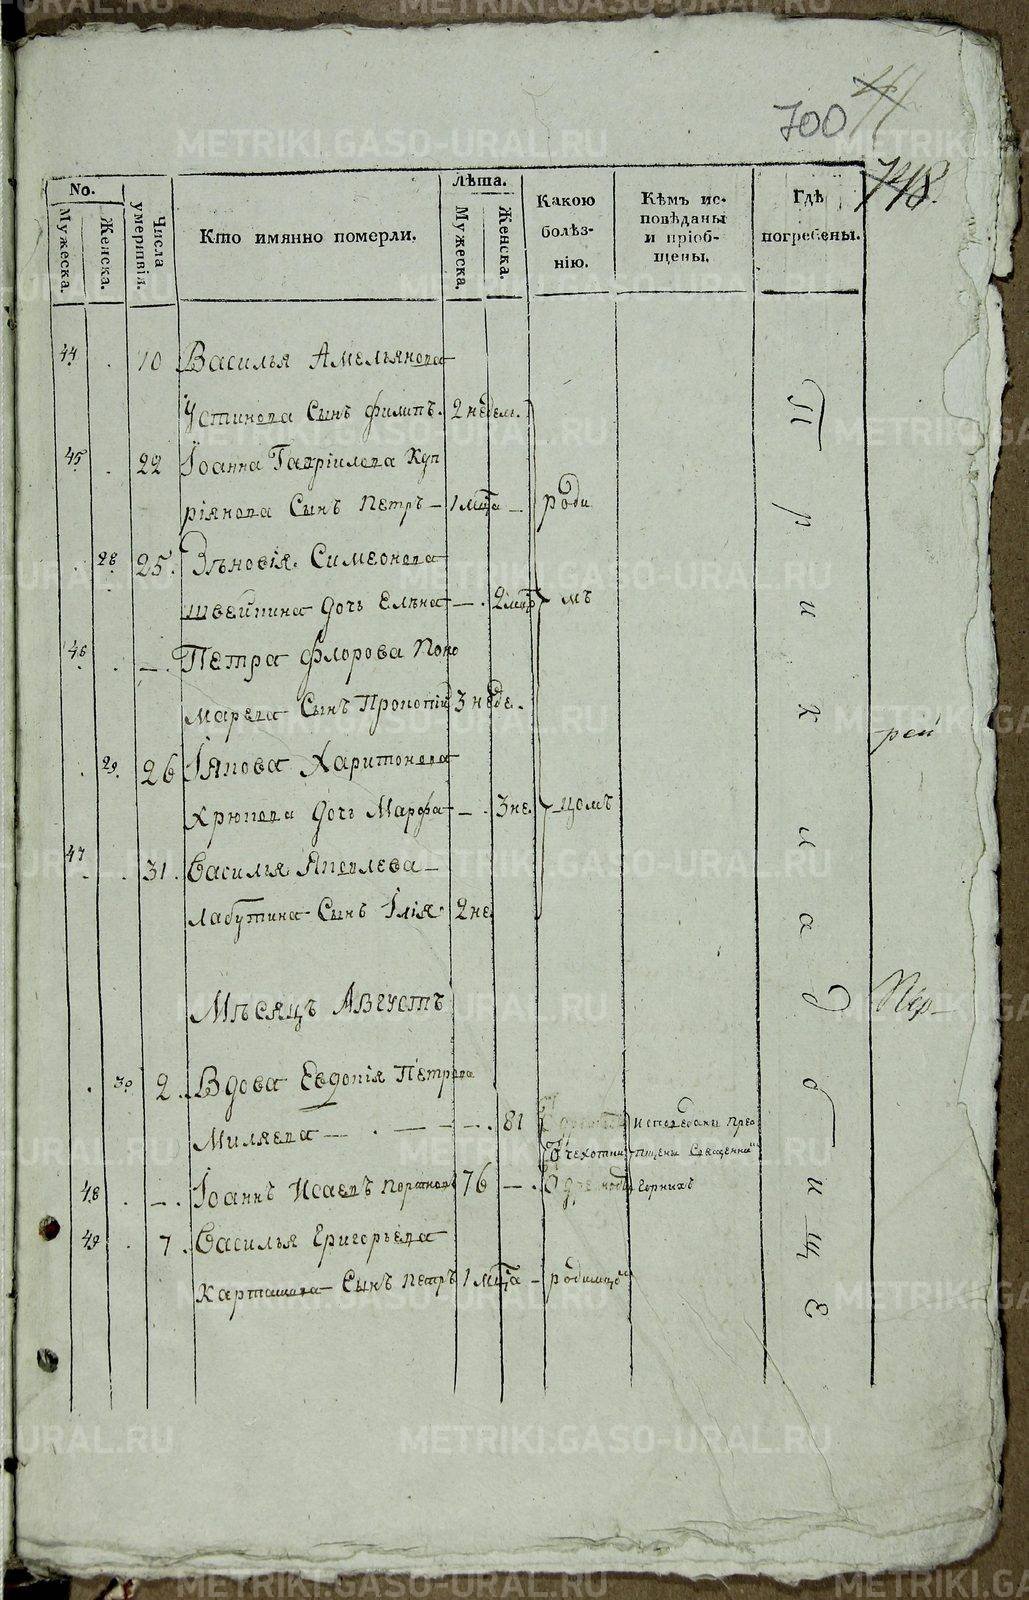 700
41
748.
No.
Мужеска.
Женска.
Числа умертвія.
Кто имянно померли.
Лѣта.
Мужеска.
Женска.
Какою болѣз-нію.
Кѣмъ ис-повѣданы и пріоб-щены.
Гдѣ погребены.
44 . 10 Василья Амельянова
Устинова Сынъ Филипъ. 2 недель.
45 . 22 Іоанна Гавріилова Куп
ріянова Сынъ Петръ — 1 мца — роди
. 28. 25. Зѣновія Симеонова
Швейкина дочь Елѣна — . 2 мцъ мъ
46 . — . Петра Флорова Поно
марева Сынъ Прокопій 3 неде.
. 29. 26 Іякова Харитонова
Хрюкова дочь Марфа — . 3 не. цомъ
47 . 31. Василья Яковлева —
Лабутина Сынъ Ілія. 2 не.
Мѣсяцъ Августъ
. 30 2. Вдова Евдокія Петрова
Миляева — . — — — . 81 исповеданы прео
чехотки пщены Священни
48 . — . Іоаннъ Исаевъ Портновъ 76 — .
49 . 7. Василья Григорьева
Карташева Сынъ Петръ 1 мца — родимцо
Приходское
Пер
METRIKI.GASO-URAL.RU